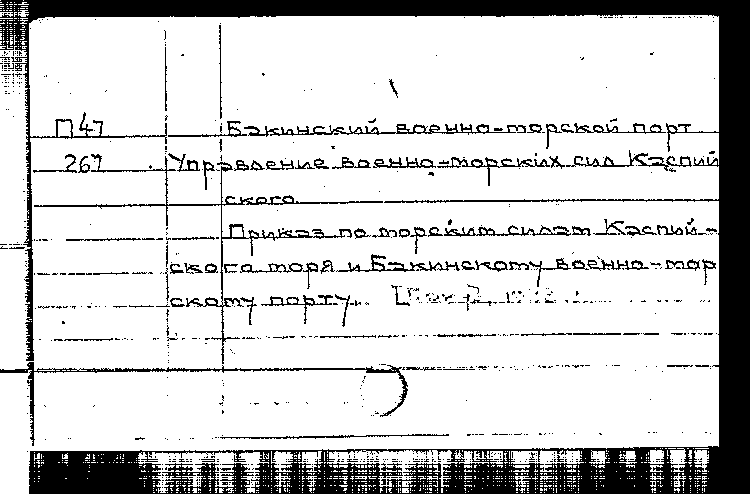 П47 Бакинский военно-морской порт
267 Управление военно-морских сил Каспий
ского
Приказ по морским силам Каспий-
ского моря и Бакинскому военно-мор
скому порту.